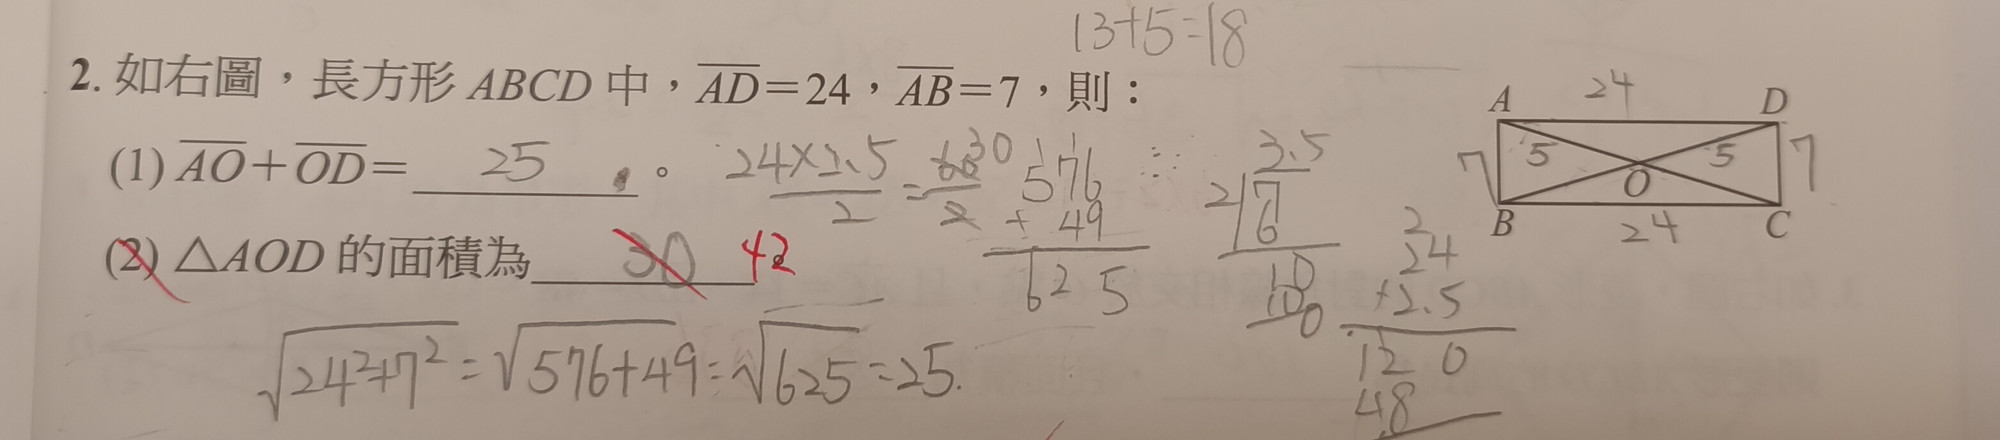 13+5=18
2. 如右圖，長方形 ABCD 中，AD=24，AB=7，則：
(1) AO+OD= 25 。
(2) △AOD 的面積為 30 42
24×2.5
2
=
30
2
576
+ 49
625
3.5
2 7
6
10
10
0
2
24
×2.5
120
48
√24²+7² = √576+49 = √625 = 25.
A 24 D
7 5 5 7
O
B 24 C